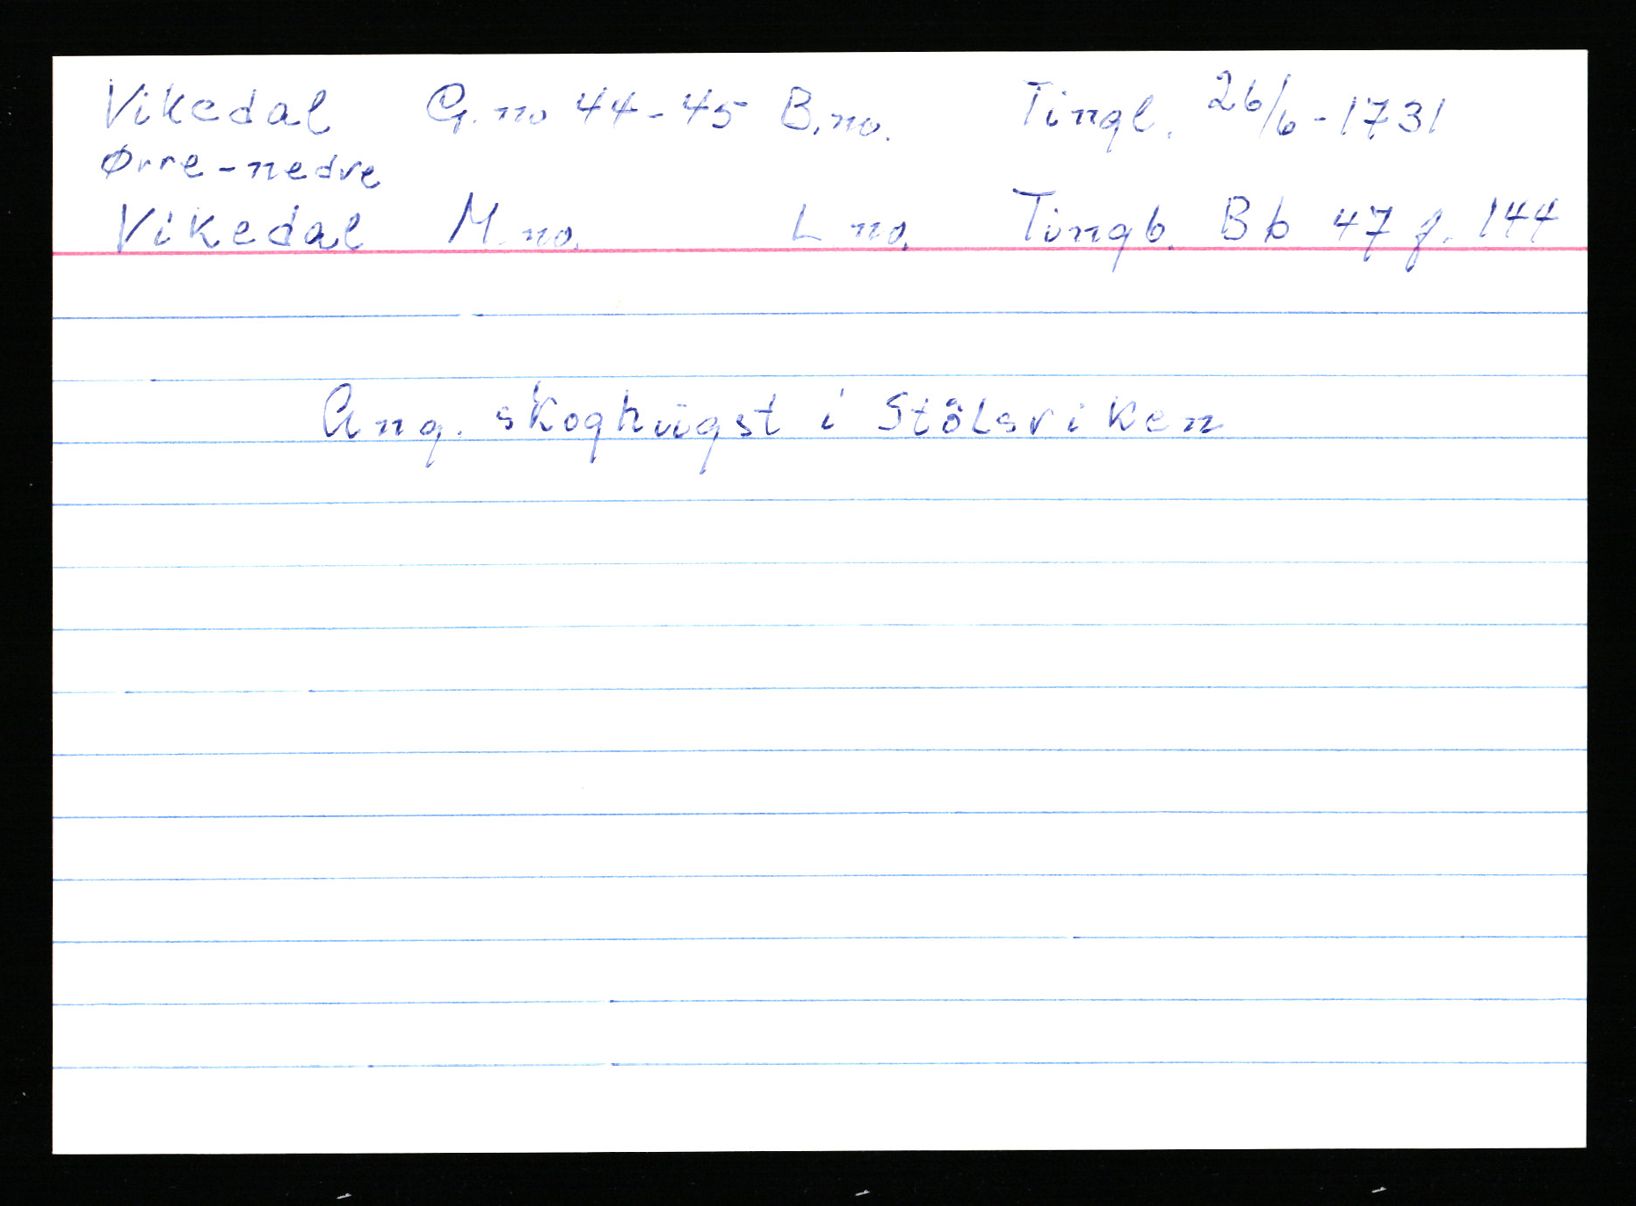 Vikedal G.no 44-45 B.no. Tingl. 26/6-1731
Ørre-nedre
Vikedal M.no. L.no. Tingb. Bb 47 f. 144
Ang. skoghugst i Stølsviken